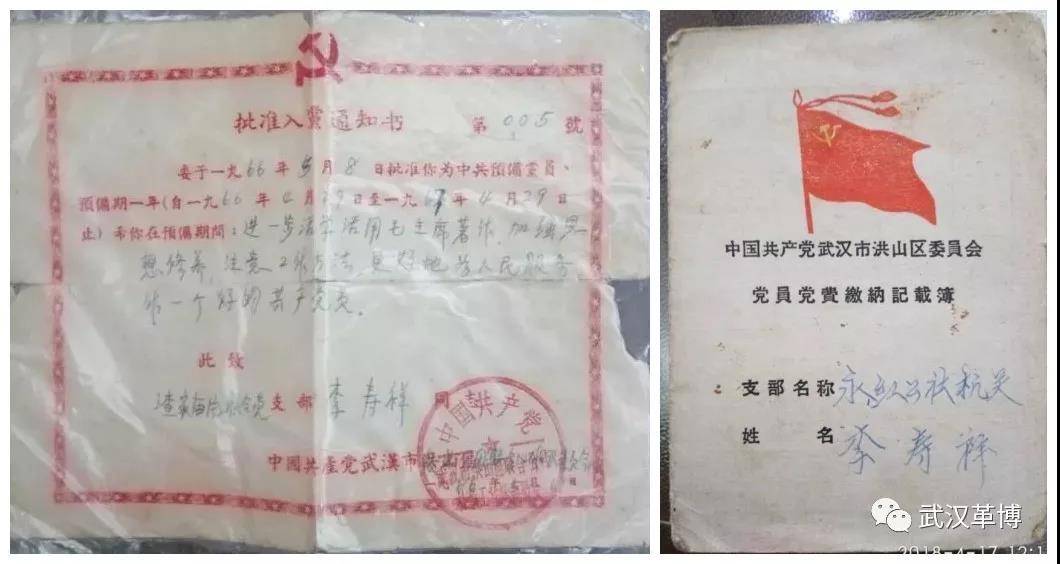 批准入黨通知书 第005號
委于一九66年5月8日批准你为中共預備党員、
預備期一年(自一九66年4月29日至一九67年4月29日
止)希你在預備期間：进一步活学活用毛主席著作，加强思
想修养，注意工作方法，更好地为人民服务，
作一个好的共产党员。
此致
支部 李寿祥 同
中国共产党
中國共產党武漢市
中国共产党武汉市洪山区委員会
党員党費繳納記載簿
支部名称 永红公社机关
姓名 李寿祥
武汉革博
2018-4-17 12:1